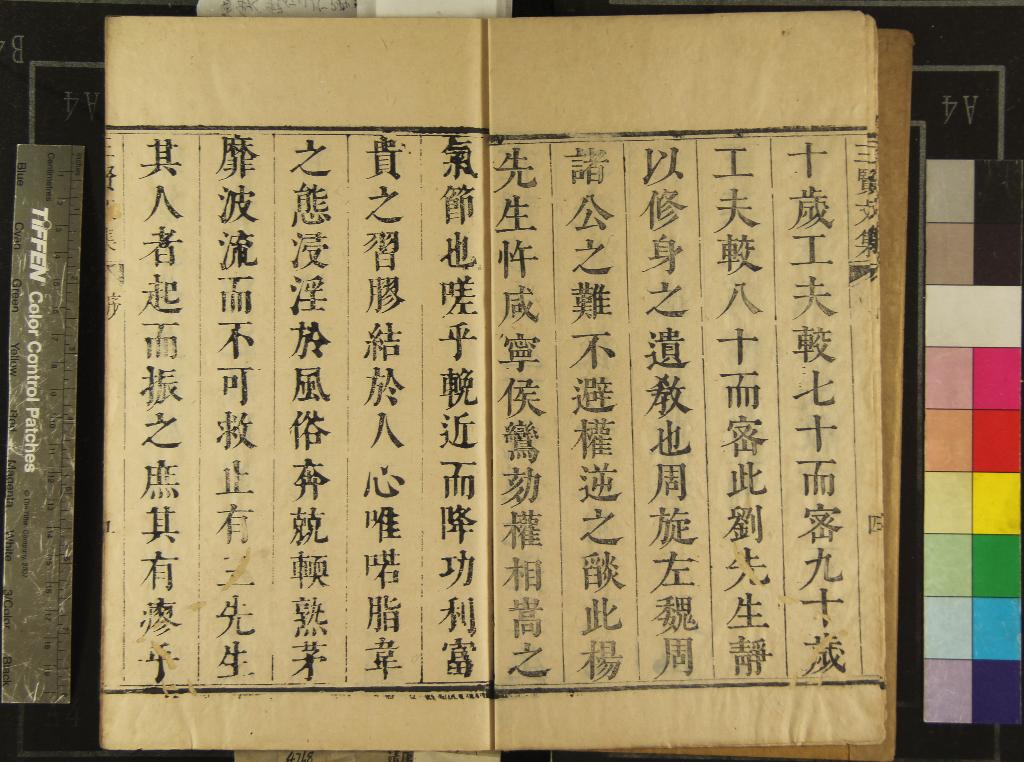 三賢文集
四
十歲工夫較七十而密九十歲
工夫較八十而密此劉先生靜
以修身之遺教也周旋左魏周
諸公之難不避權逆之燄此楊
先生忤咸寧侯鸞劾權相嵩之
氣節也嗟乎輓近而降功利富
貴之習膠結於人心唯喏脂韋
之態浸淫於風俗奔兢頓熟茅
靡波流而不可救止有三先生
其人者起而振之庶其有瘳乎
TIFFEN Color Control Patches
Centimetres
Blue
Cyan
Green
Yellow
Red
Magenta
White
3/Color
Black
A4
A4
4768